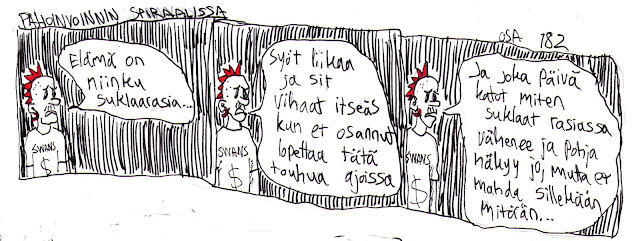 PAHOINVOINNIN SPIRAALISSA
OSA 182
Elämä on
niinku
suklaarasia...
SWANS
$
Syöt liikaa
ja sit
vihaat itseäs
kun et osannut
lopettaa tätä
touhua ajoissa
SWANS
$
Ja joka päivä
katot miten
suklaat rasiassa
vähenee ja pohja
näkyy jo, mutta et
mahda sillekään
mitään...
SWANS
$